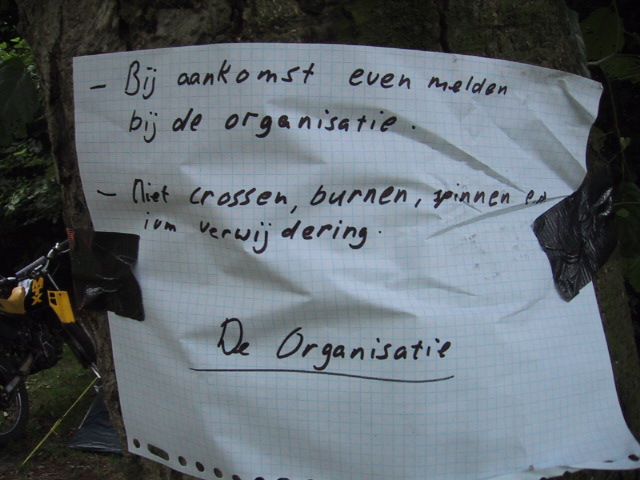 - Bij aankomst even melden
bij de organisatie.
- Niet crossen, burnen, spinnen en
ivm verwijdering.
De Organisatie